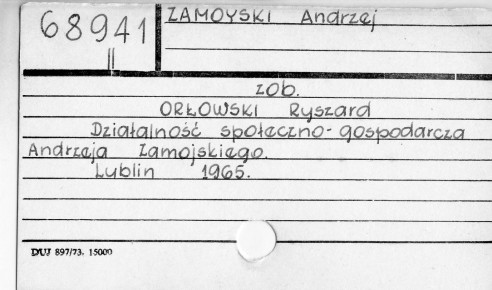 68941
II
ZAMOYSKI Andrzej
zob.
ORŁOWSKI Ryszard
Działalność społeczno-gospodarcza
Andrzeja Zamojskiego.
Lublin 1965.
DUJ 897/73. 15000